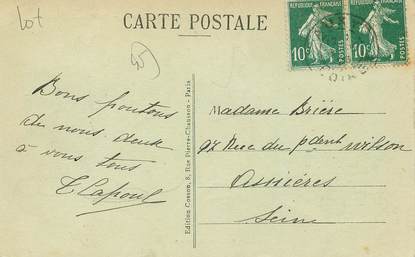 Lot
CARTE POSTALE
RÉPUBLIQUE FRANÇAISE
10c
POSTES
RÉPUBLIQUE FRANÇAISE
10c
POSTES
45
Bons
de nous deux
à vous tous
Edition Cosson, 8, Rue Pierre-Chausson - Paris
Madame Brière
97 Rue du Pdent Wilson
Asnières
Seine